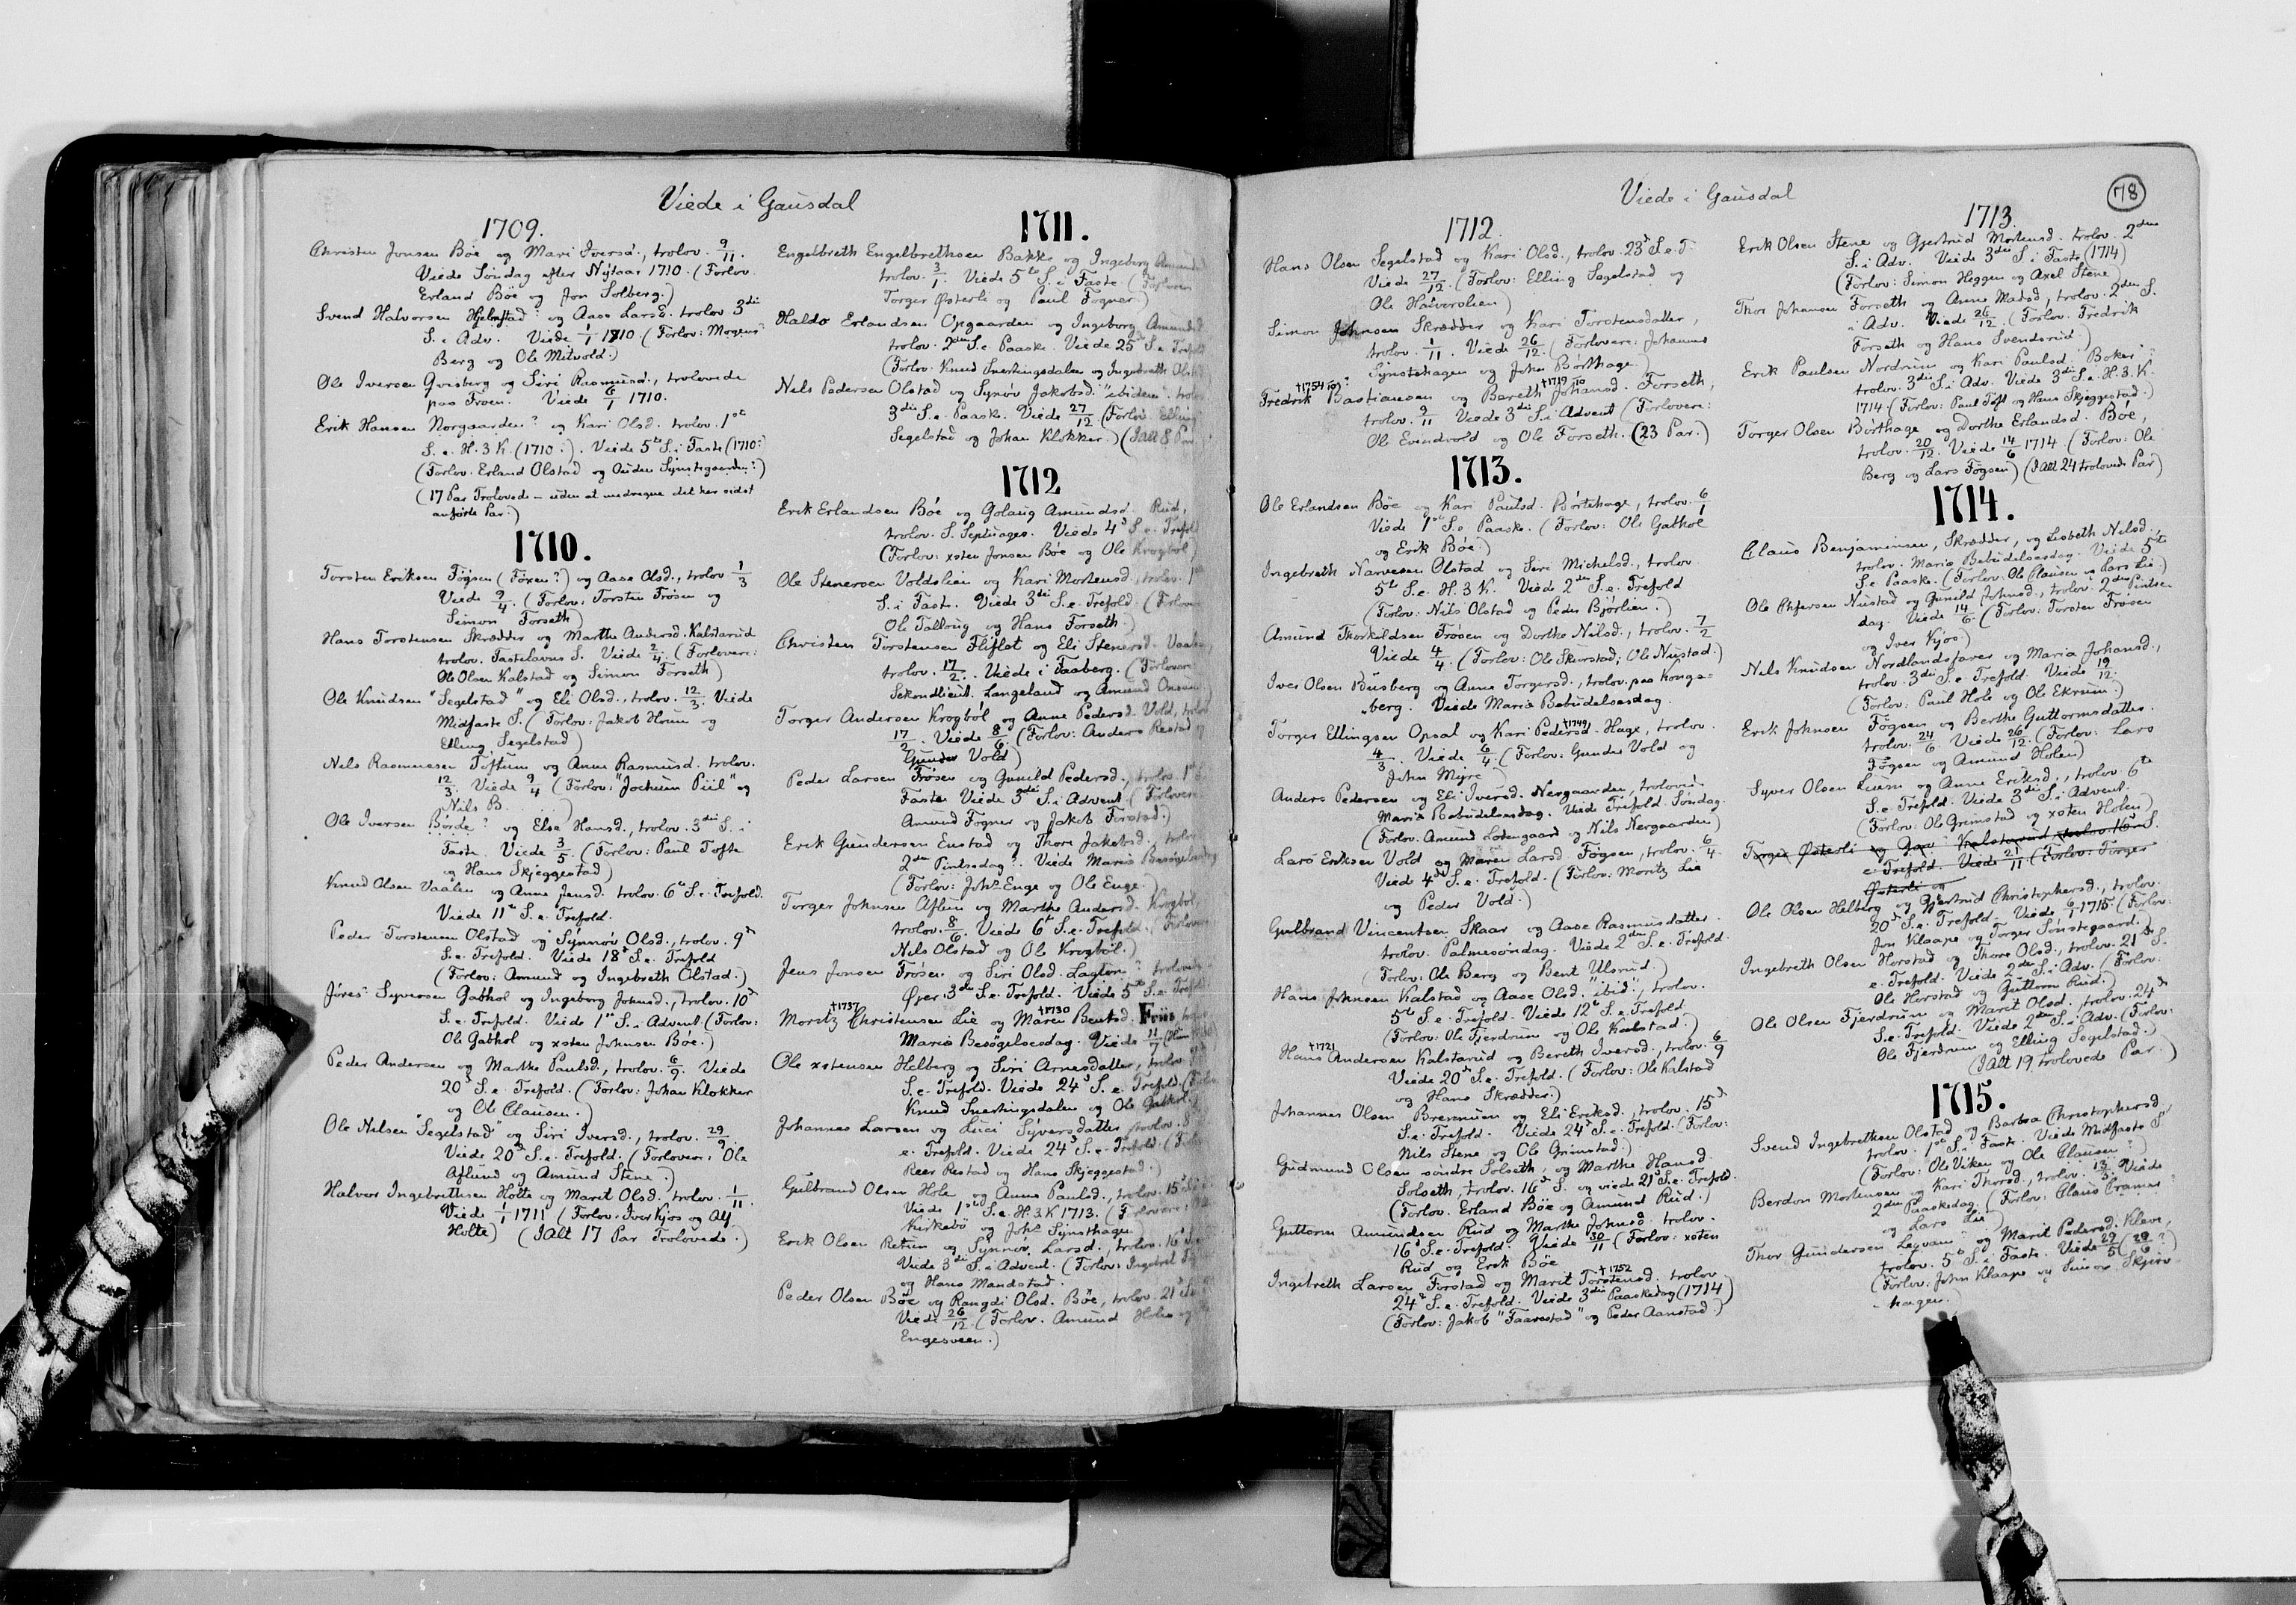 Viede i Gausdal
1709.
Christen Jonsen Böe og Mari Iversd., trolov. 9/11.
Viede Söndag efter Nytaar 1710. (Forlov.
Erland Böe og Jon Solberg.)
Svend Halvorsen Hjelmstad? og Aase Larsd. trolov. 3die
S. i Adv. Viede 1/1 1710. (Forlov: Mogens
Berg og Ole Mitvold.)
Ole Iversen Qvisberg og Siri Rasmusd., trolovede
paa Froen. Viede 6/1 1710.
Erik Hansen Norgaarden? og Kari Olsd. trolov. 1ste
S. e. H. 3 K. (1710?). Viede 5te S. i Faste (1710?)
(Forlov. Erland Olstad og Auden Synstegaarden?)
(17 Par Trolovede – uden at medregne det her sidst
anförte Par.)
1710.
Torsten Eriksen Fögsen (Foxen?) og Aase Olsd., trolov 1/3
Viede 9/4. (Forlov: Torsten Frösen og
Simon Forseth)
Hans Torstensen Skrædder og Marthe Andersd. Kalstarud
trolov. Fastelavns S. Viede 2/4. (Forlovere:
Ole Olsen Kalstad og Simon Forseth)
Ole Knudsen "Segelstad" og Eli Olsd., trolov. 12/3. Viede
Midfaste S. (Forlov: Jakob Houm og
Elling Segelstad)
Nils Rasmusen Toftum og Anne Rasmusd. trolov.
12/3. Viede 9/4 (Forlov: "Jochum Piil" og
Nils B. )
Ole Iversen Börde? og Else Hansd., trolov. 3die S. i
Faste. Viede 3/5. (Forlov: Paul Tofte
og Hans Skjeggestad)
Knud Olsen Vaalen og Anne Jensd. trolov. 6te S. e. Trefold.
Viede 11te S. e. Trefold.
Peder Torstensen Olstad og Synnöv Olsd., trolov. 9de
S. e. Trefold. Viede 18de S. e. Trefold
(Forlov: Amund og Ingebreth Olstad.)
Jöres Syversen Gathol og Ingeborg Johnsd., trolov. 10de
S. e. Trefold. Viede 1ste S. i Advent (Forlov:
Ole Gathol og xsten Johnsen Böe.)
Peder Andersen og Marthe Paulsd., trolov. 6/9. Viede
20de S. e. Trefold. (Forlov: Johan Klokker
og Ole Clausen.)
Ole Nilsen "Segelstad" og Siri Iversd., trolov. 29/9.
Viede 20de S. e. Trefold. (Forlovere: Ole
Aflund og Amund Stene.)
Halvor Ingebrethsen Holte og Marit Olsd. trolov. 1/11.
Viede 1/1 1711 (Forlov: Iver Kjos og Alf
Holte) (I Alt 17 Par Trolovede.)
1711.
Engelbreth Engelbrethsen Bakke og Ingeborg Amundsd
trolov. 3/1. Viede 5te S. i Faste. (Forlovere
Torger Østerli og Paul Fogner)
Haldo Erlandsen Opgaarden og Ingeborg Amundsd
trolov. 2den S. e. Paaske. Viede 25de S. e. Trefold
(Forlov: Knud Sverkingsdalen og Ingebreth Olstad
Nils Pedersen Olstad og Synöv Jakobsd. "ibidem". trolov
3die S. e. Paaske. Viede 27/12 (Forlov: Elling
Segelstad og Johan Klokker.) (I Alt 8 Par.
1712
Erik Erlandsen Böe og Golaug Amundsd. Rud,
trolov. S. Septuages. Viede 4de S. e. Trefold
(Forlov: xsten Jonsen Böe og Ole Krogböl)
Ole Stenersen Voldslien og Kari Mortensd., trolov. 1ste
S. i Faste. Viede 3die S. e. Trefold. (Forlov
Ole Tallaug og Hans Forseth.)
Christen Torstensen Fliflet og Eli Stenersd. Vaalen,
trolov. 17/2. Viede i Faaberg. (Forlovere
Sekondlieut. Langeland og Amund Onsum.)
Torger Andersen Krogböl og Anne Pedersd. Vold, trolov
17/2. Viede 8/6. (Forlov: Anders Restad og
Gunder Vold)
Peder Larsen Frösen og Gunild Pedersd., trolov. 1ste S.
Faste Viede 3die S. i Advent. (Forlovere
Amund Fogner og Jakob Forstad.)
Erik Gundersen Enstad og Thore Jakobsd. trolov
2den Pintsedag?. Viede Mariæ Besögelsesdag
(Forlov: Johs Enge og Ole Enge.)
Torger Johnsen Aflun og Marthe Andersd. Krogböl,
trolov. 8/6. Viede 6te S. e. Trefold. (Forlovere
Nils Olstad og Ole Krogböl.)
Jens Jonsen Frösen og Siri Olsd. Laglon? trolovede
Øjer. 3die S. e. Trefold. Viede 5te S. e. Trefold
†1737 †1730
Moritz Christensen Lie og Maren Bentsd. Friis
Mariæ Besögelsesdag. Viede 11/7
Ole xstensen Helberg og Siri Arnesdatter, trolov
S. e. Trefold. Viede 24de S. e. Trefold. (Forlov
Knud Sverkingsdalen og Ole Gathol.)
Johannes Larsen og Luci Syversdatter, trolov. 8
e. Trefold. Viede 24de S. e. Trefold. (Forlov
Peer Restad og Hans Skjeggestad.)
Gulbrand Olsen Holen og Anne Paulsd., trolov. 15de
Viede 1ste S. e. H. 3. K 1713. (Forlovere:
Kirkebö og Johs Synsthagen)
Erik Olsen Retun og Synnöv Larsd., trolov. 16de
Viede 3die S. i Advent. (Forlov: Ingebret
og Hans Mandstad.
Peder Olsen Böe og Rangdi Olsd. Böe, trolov. 21de
Viede 26/12. (Forlov. Amund Holen og
Engesveen.)
Viede i Gausdal
78
1712.
Hans Olsen Segelstad og Kari Olsd., trolov. 23de S. e. T.
Viede 27/12. (Forlov: Elling Segelstad og
Ole Halvorslien)
Simon Johnsen Skrædder og Kari Torstensdatter,
trolov. 1/11. Viede 26/12. (Forlovere: Johannes
Synstehagen og John Börthage)
†1754 †1719
Fredrik Bastiansen og Bereth Johansd. Forseth,
trolov. 9/11 Viede 3die S. i Advent (Forlovere:
Ole Evindvold og Ole Forseth. (23 Par.)
1713.
Ole Erlandsen Böe og Kari Paulsd. Börtehage, trolov. 6/1
Viede 1ste S. e. Paaske. (Forlov: Ole Gathol
og Erik Böe.)
Ingebreth Narvesen Olstad og Siri Michelsd., trolov.
5te S. e. H. 3 K. Viede 2den S. e. Trefold
(Forlov: Nils Olstad og Peder Bjorlien.)
Amund Thorkildsen Frösen og Dorthe Nilsd., trolov. 7/2
Viede 4/4. (Forlov: Ole Skurstad; Ole Nustad.)
Iver Olsen Busberg og Anne Torgersd., trolov. paa Kongs=
berg. Viede Mariæ Bebudelsesdag.
†1749
Torger Ellingsen Opsal og Kari Pedersd. Hage, trolov.
4/3. Viede 6/4. (Forlov: Gunder Vold og
John Myre)
Anders Pedersen og Eli Iversd. Nergaarden, trolovede
Mariæ Bebudelsesdag. Viede Trefold. Söndag.
(Forlov. Amund Lodengaard og Nils Nergaarden)
Lars Eriksen Vold og Maren Larsd. Fögsen, trolov. 6/4.
Viede 4de S. e. Trefold. (Forlov: Moritz Lie
og Peder Vold.)
Gulbrand Vincentsen Skaar og Aase Rasmusdatter.
trolov. Palmesöndag. Viede 2den S. e. Trefold.
(Forlov: Ole Berg og Bent Ulsrud.)
Hans Johnsen Kalstad og Aase Olsd. "ibid", trolov.
5te S. e. Trefold. Viede 12te S. e. Trefold
(Forlov: Ole Fjerdrum og Ole Kalstad.)
†1721
Hans Andersen Kalstarud og Bereth Iversd., trolov. 6/9
Viede 20de S. e. Trefold. (Forlov: Ole Kalstad
og Hans Skrædder.)
Johannes Olsen Brevenuen og Eli Eriksd., trolov. 15de
S. e. Trefold. Viede 24de S. e. Trefold. (Forlov:
Nils Stene og Ole Grimstad.)
Gudmund Olsen söndre Solseth, og Marthe Hansd.
Solseth, trolov. 16de S. og viede 21de S. e. Trefold.
(Forlov. Erland Böe og Amund Rud.)
Guttorm Amundsen Rud og Marthe Johnsd. trolov.
16de S. e. Trefold. Viede 30/11 (Forlov: xsten
Rud og Erik Böe
†1752
Ingebreth Larsen Forstad og Marit Torstensd. trolov.
24de S. e. Trefold. Viede 3die Paaskedag (1714)
(Forlov: Jakob "Faarestad" og Peder Aanstad.)
1713.
Erik Olsen Stene og Gjertrud Mortensd. trolov. 2den
S. i Adv. Viede 3die S. i Faste (1714)
(Forlov: Simon Heggen og Axel Stene)
Thor Johansen Forseth og Anne Madsd, trolov. 2den S.
i Adv. Viede 26/12. (Forlov. Fredrik
Forseth og Hans Svendsrud.)
Erik Paulsen Nordrum og Kari Paulsd. "Boker"?
trolov. 3die S. i Adv. Viede 3die S. e. H. 3. K.
1714. (Forlov: Paul Toft og Hans Skjeggestad.)
Torger Olsen Börthage og Dorthe Erlandsd. Böe,
trolov. 20/12. Viede 14/6 1714 (Forlov: Ole
Berg og Lars Fögsen) (I Alt 24 trolovede Par)
1714.
Claus Benjaminsen, Skrædder, og Lisbeth Nilsd.,
trolov. Mariæ Bebudelsesdag. Viede 5te
S. e. Paaske. (Forlov: Ole Clausen og Lars Lie.)
Ole Chfersen Nustad og Gunild Johnsd., trolov. 2den Pintse
dag. Viede 14/6. (Forlov: Torsten Frösen
og Iver Kjos)
Nils Knudsen Nordlandsfarer og Maria Johansd.,
trolov. 3die S. e. Trefold. Viede 19/12.
(Forlov: Paul Hole og Ole Ekrum.)
Erik Johnsen Fögsen og Berthe Guttormsdatter.
trolov. 24/6 Viede 26/12. (Forlov: Lars
Fögsen og Amund Holen)
Syver Olsen Lium og Anne Eriksd., trolov. 6te
S. e. Trefold. Viede 3die S. i Advent.
(Forlov: Ole Grimstad og xsten Holen)
Torger Østerli og Gro Kalstarud trolov. 16de S.
e. Trefold. Viede 21/11 (Forlov: Torger
Østerli og
Ole Olsen Helberg og Gjertrud Christophersd., trolov.
20de S. e. Trefold. Viede 6/1 1715. (Forlov:
Jon Klaape og Torger Sönstegaard.)
Ingebreth Olsen Horstad og Thore Olsd., trolov. 21de S.
e. Trefold. Viede 2den S. i Adv. (Forlov.
Ole Horstad og Guttorm Rud.)
Ole Olsen Fjerdrum og Marit Olsd. trolov. 24de
S. e. Trefold. Viede 2den S. i Adv. (Forlov:
Ole Fjerdrum og Elling Segelstad.)
(I Alt 19 trolovede Par.)
1715.
Svend Ingebrethsen Olstad og Barbra Christophersd.,
trolov. 1ste S. i Faste. Viede Midfaste S.
(Forlov: Ole Viken og Ole Clausen?)
Berdon Mortensen og Kari Thorsd., trolov. 13/3. Viede
2den Paaskedag. (Forlov: Claus Cramer?
og Lars Lie.)
Thor Gundersen Legvam? og Marit Pedersd. Kleve,
trolov. 5te S. i Faste. Viede 29/5 (29/6?)
(Forlov: John Klaape og Simon Skjers-
hagen.)